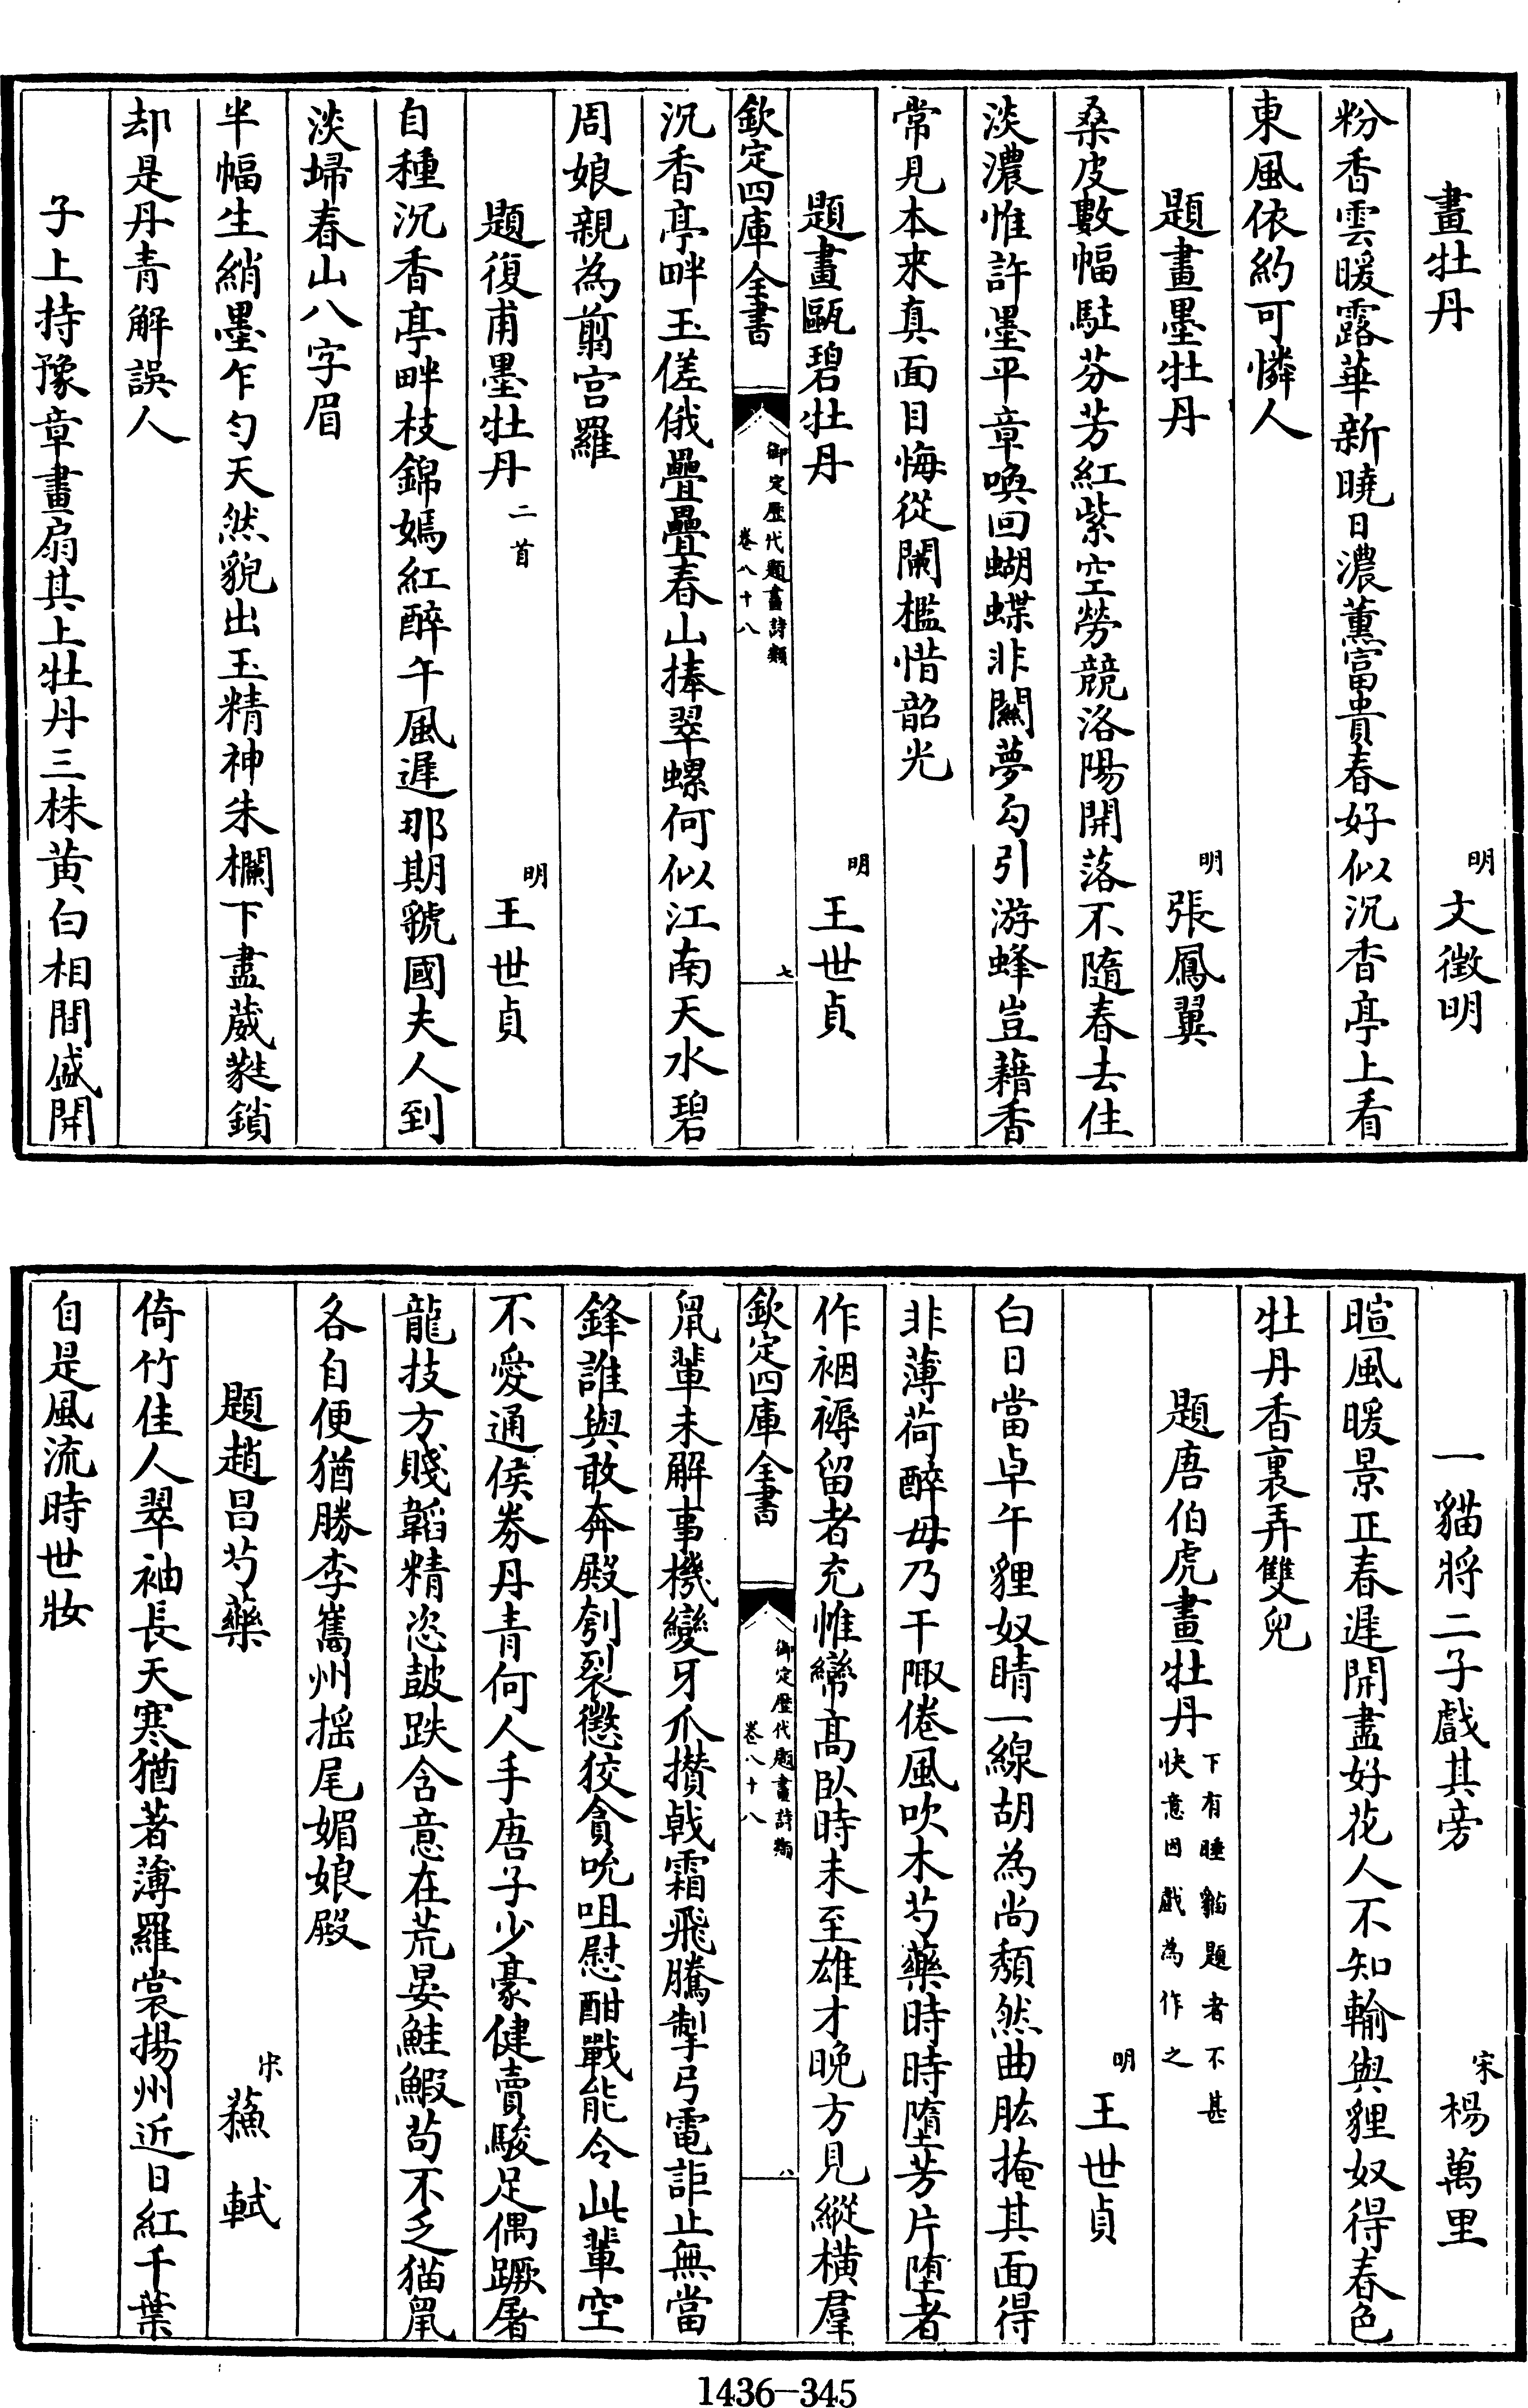 畫牡丹　明文徵明
粉香雲暖露華新曉日濃薰富貴春好似沉香亭上看
東風依約可憐人
題畫墨牡丹　明張鳳翼
桑皮數幅駐芬芳紅紫空勞競洛陽開落不隨春去住
淡濃惟許墨平章喚回蝴蝶非關夢勾引游蜂豈藉香
常見本来真面目悔從闌檻惜韶光
題畫甌碧牡丹　明王世貞
欽定四庫全書　御定歷代題畫詩類卷八十八　七
沉香亭畔玉傞俄疊疊春山捧翠螺何似江南天水碧
周娘親為翦宮羅
題復甫墨牡丹二首　明王世貞
自種沉香亭畔枝錦嫣紅醉午風遲那期虢國夫人到
淡埽春山八字眉
半幅生綃墨乍勻天然貌出玉精神朱欄下盡葳蕤鎖
却是丹青解誤人
子上持豫章畫扇其上牡丹三株黄白相間盛開
一貓將二子戲其旁　宋楊萬里
暄風暖景正春遲開盡好花人不知輸與貍奴得春色
牡丹香裏弄雙兒
題唐伯虎畫牡丹下有睡貓題者不甚快意因戲為作之
明王世貞
白日當卓午貍奴睛一線胡為尚頹然曲肱掩其面得
非薄荷醉毋乃干陬倦風吹木芍藥時時墮芳片堕者
作裀褥留者充帷幰高臥時未至雄才晚方見縱橫羣
欽定四庫全書　御定歷代題畫詩類卷八十八　八
鼠軰未解事機變牙爪攢戟霜飛騰掣弓電詎止無當
鋒誰與敢奔殿刳裂懲狡貪吮咀慰酣戰能令此軰空
不愛通侯券丹青何人手唐子少豪健賣駿足偶蹶屠
龍技方賤韜精恣跛跌含意在荒晏鮭鰕苟不乏猫鼠
各自便猶勝李嶲州揺尾媚娘殿
題趙昌芍藥　宋蘓軾
倚竹佳人翠袖長天寒猶著薄羅裳揚州近日紅千葉
自是風流時世妝
1436—345